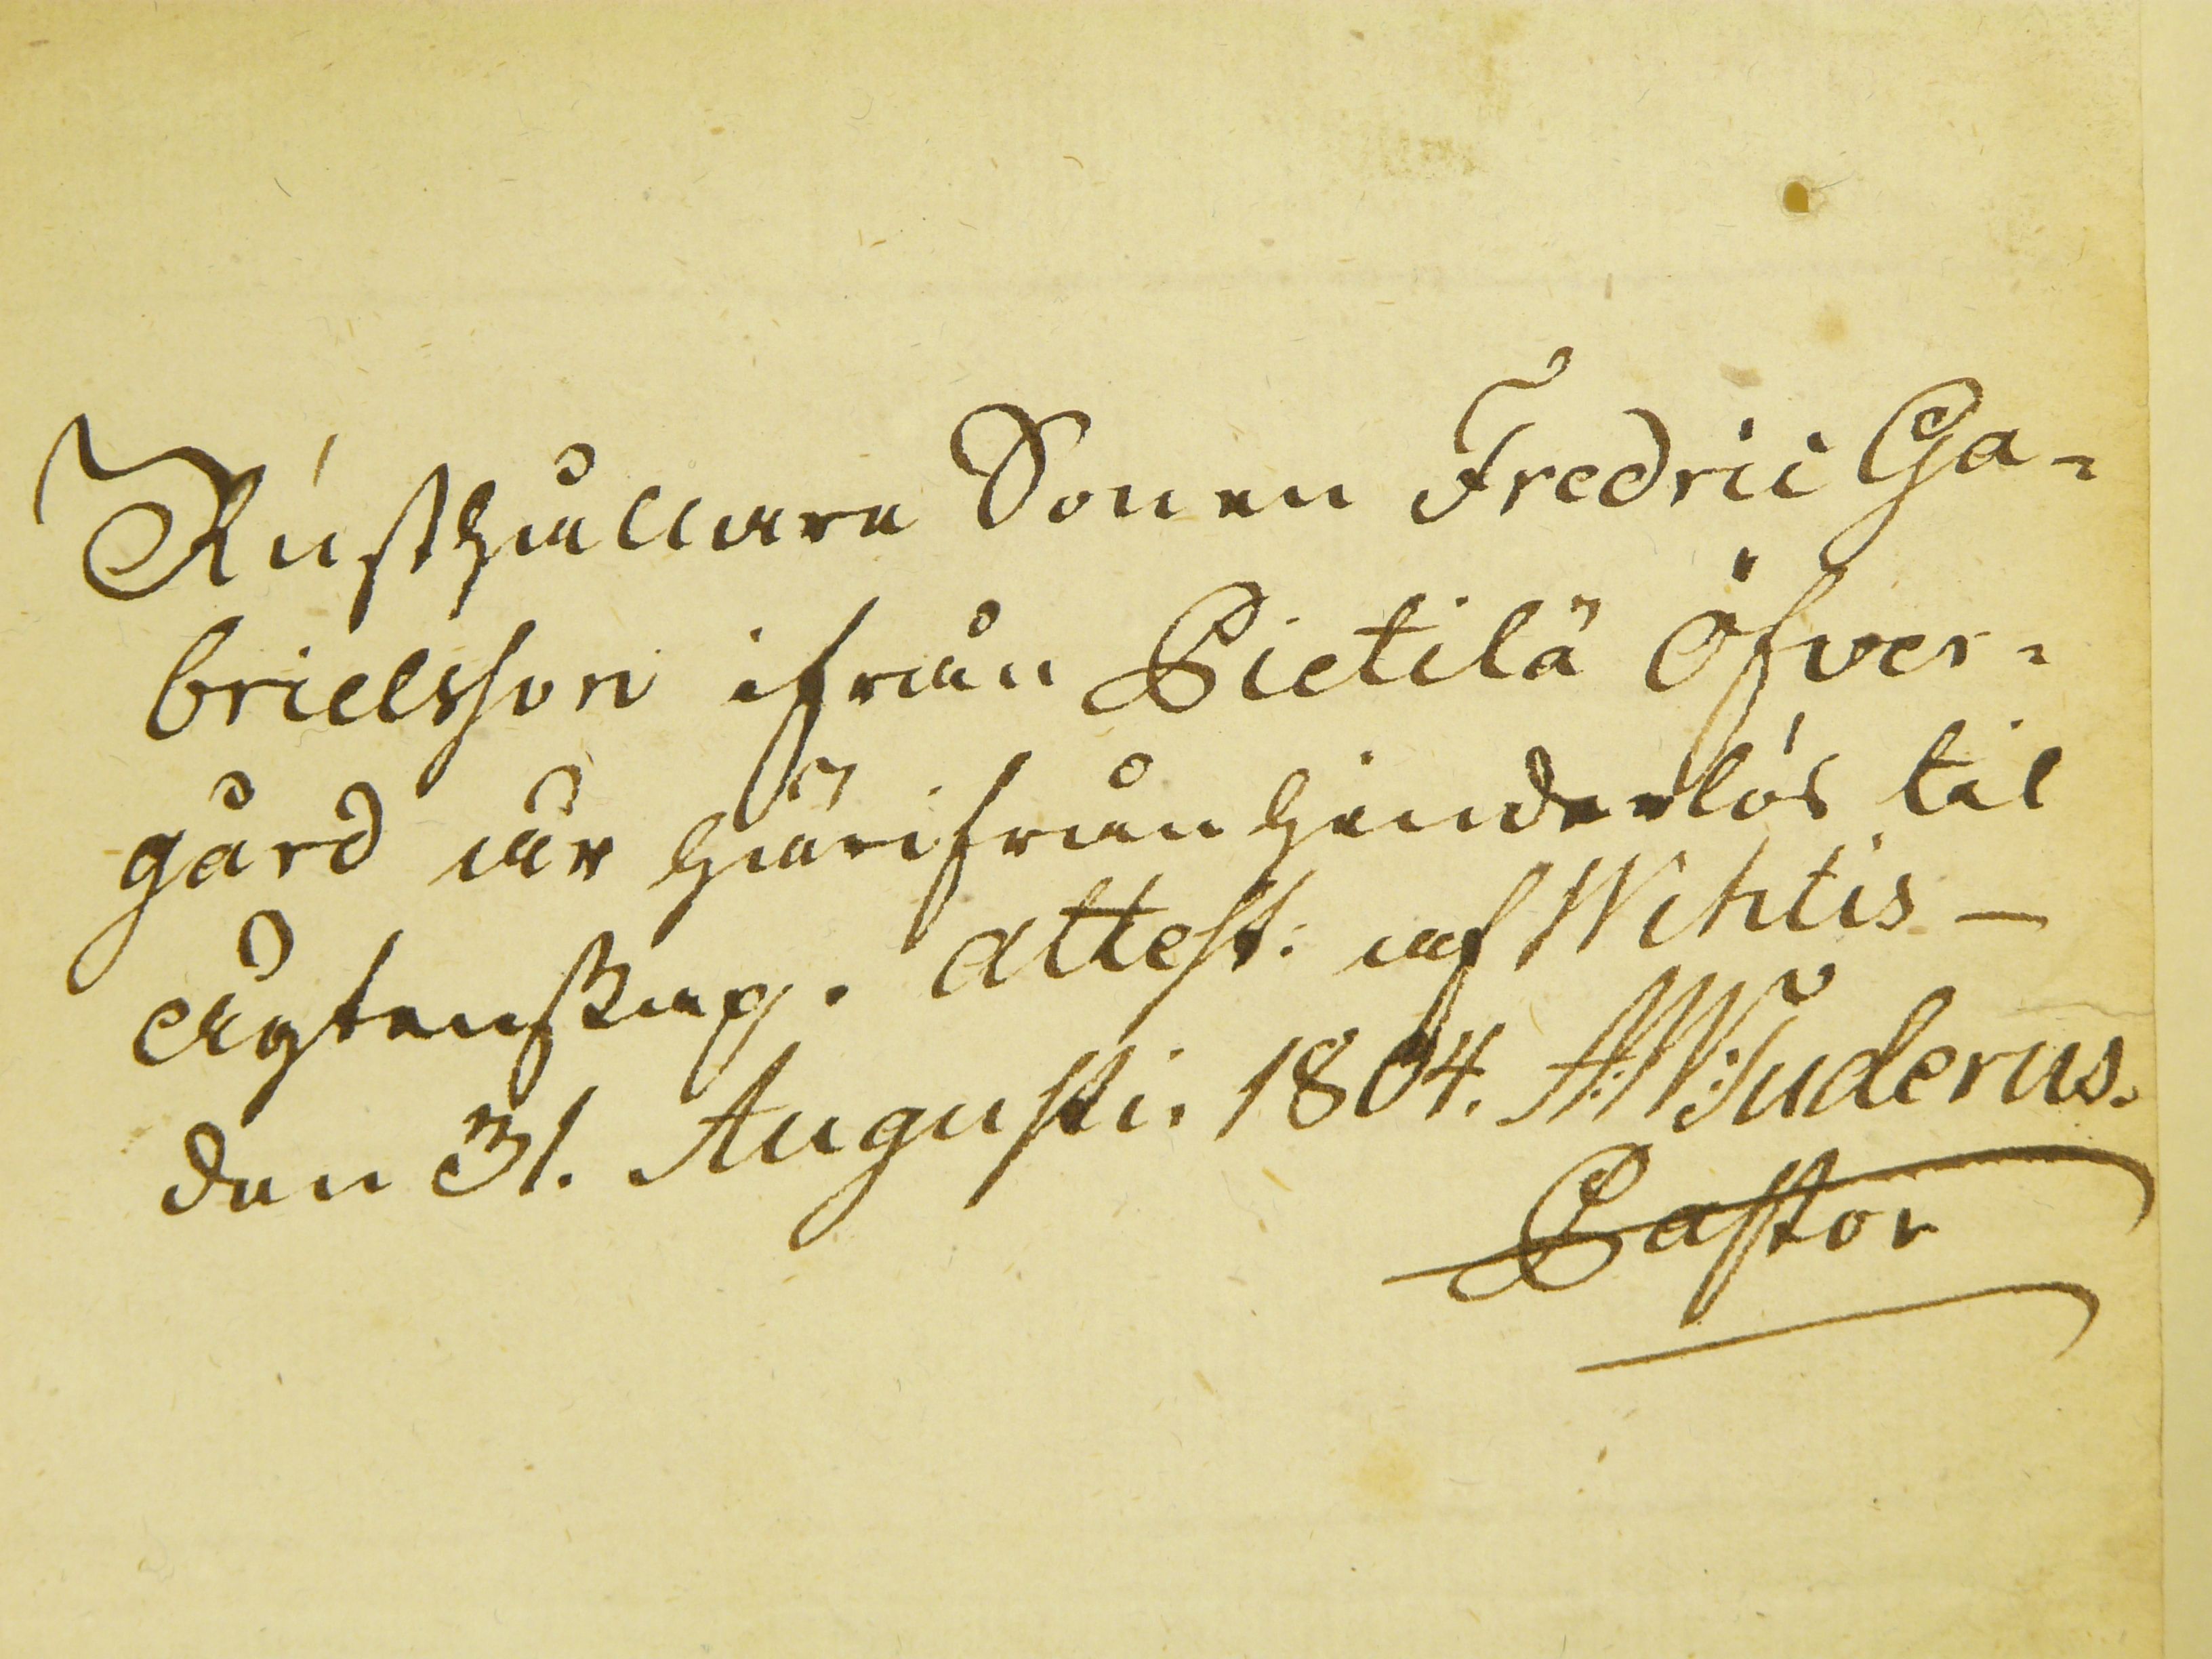 Rusthållare Sonen Fredric Ga-
brielsson ifrån Pietilä Öfver-
gård är härifrån hinderlös til
ägtenskap. attest. af Wihtis -
den 31. Augusti. 1804. A:W:Juderus.
Pastor